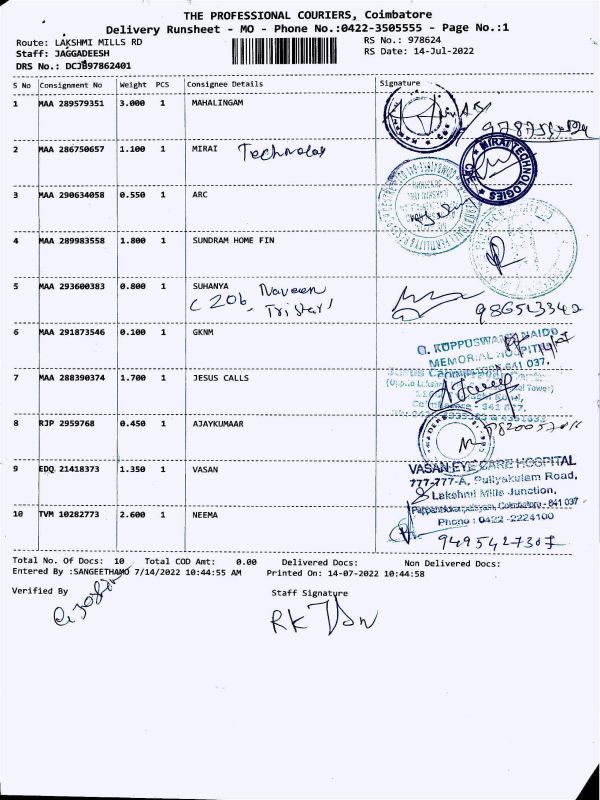 THE PROFESSIONAL COURIERS, Coimbatore
Delivery Runsheet - MO - Phone No.:0422-3505555 - Page No.:1
Route: LAKSHMI MILLS RD
RS No.: 978624
Staff: JAGGADEESH
RS Date: 14-Jul-2022
DRS No.: DCJB97862401
S No Consignment No Weight PCS Consignee Details Signature
1 MAA 289579351 3.000 1 MAHALINGAM
2 MAA 286750657 1.100 1 MIRAI Technology
MIRAI TECHNOLOGIES
CBE
3 MAA 290634058 0.550 1 ARC
4 MAA 289983558 1.800 1 SUNDRAM HOME FIN
5 MAA 293600383 0.800 1 SUHANYA
C 206 Naveen
Tristar
6 MAA 291873546 0.100 1 GKNM
G. KUPPUSWAMY NAIDU
MEMORIAL HOSPITAL
641 037.
7 MAA 288390374 1.700 1 JESUS CALLS
8 RJP 2959768 0.450 1 AJAYKUMAAR
9 EDQ 21418373 1.350 1 VASAN
VASAN EYE CARE HOSPITAL
777-777-A, Puliyakulam Road,
Lakshmi Mills Junction,
Pappanaickenpalayam, Coimbatore - 641 037
Phone : 0422 -2224100
10 TVM 10282773 2.600 1 NEEMA
9495427307
Total No. Of Docs: 10 Total COD Amt: 0.00 Delivered Docs: Non Delivered Docs:
Entered By :SANGEETHAMO 7/14/2022 10:44:55 AM Printed On: 14-07-2022 10:44:58
Verified By
Staff Signature